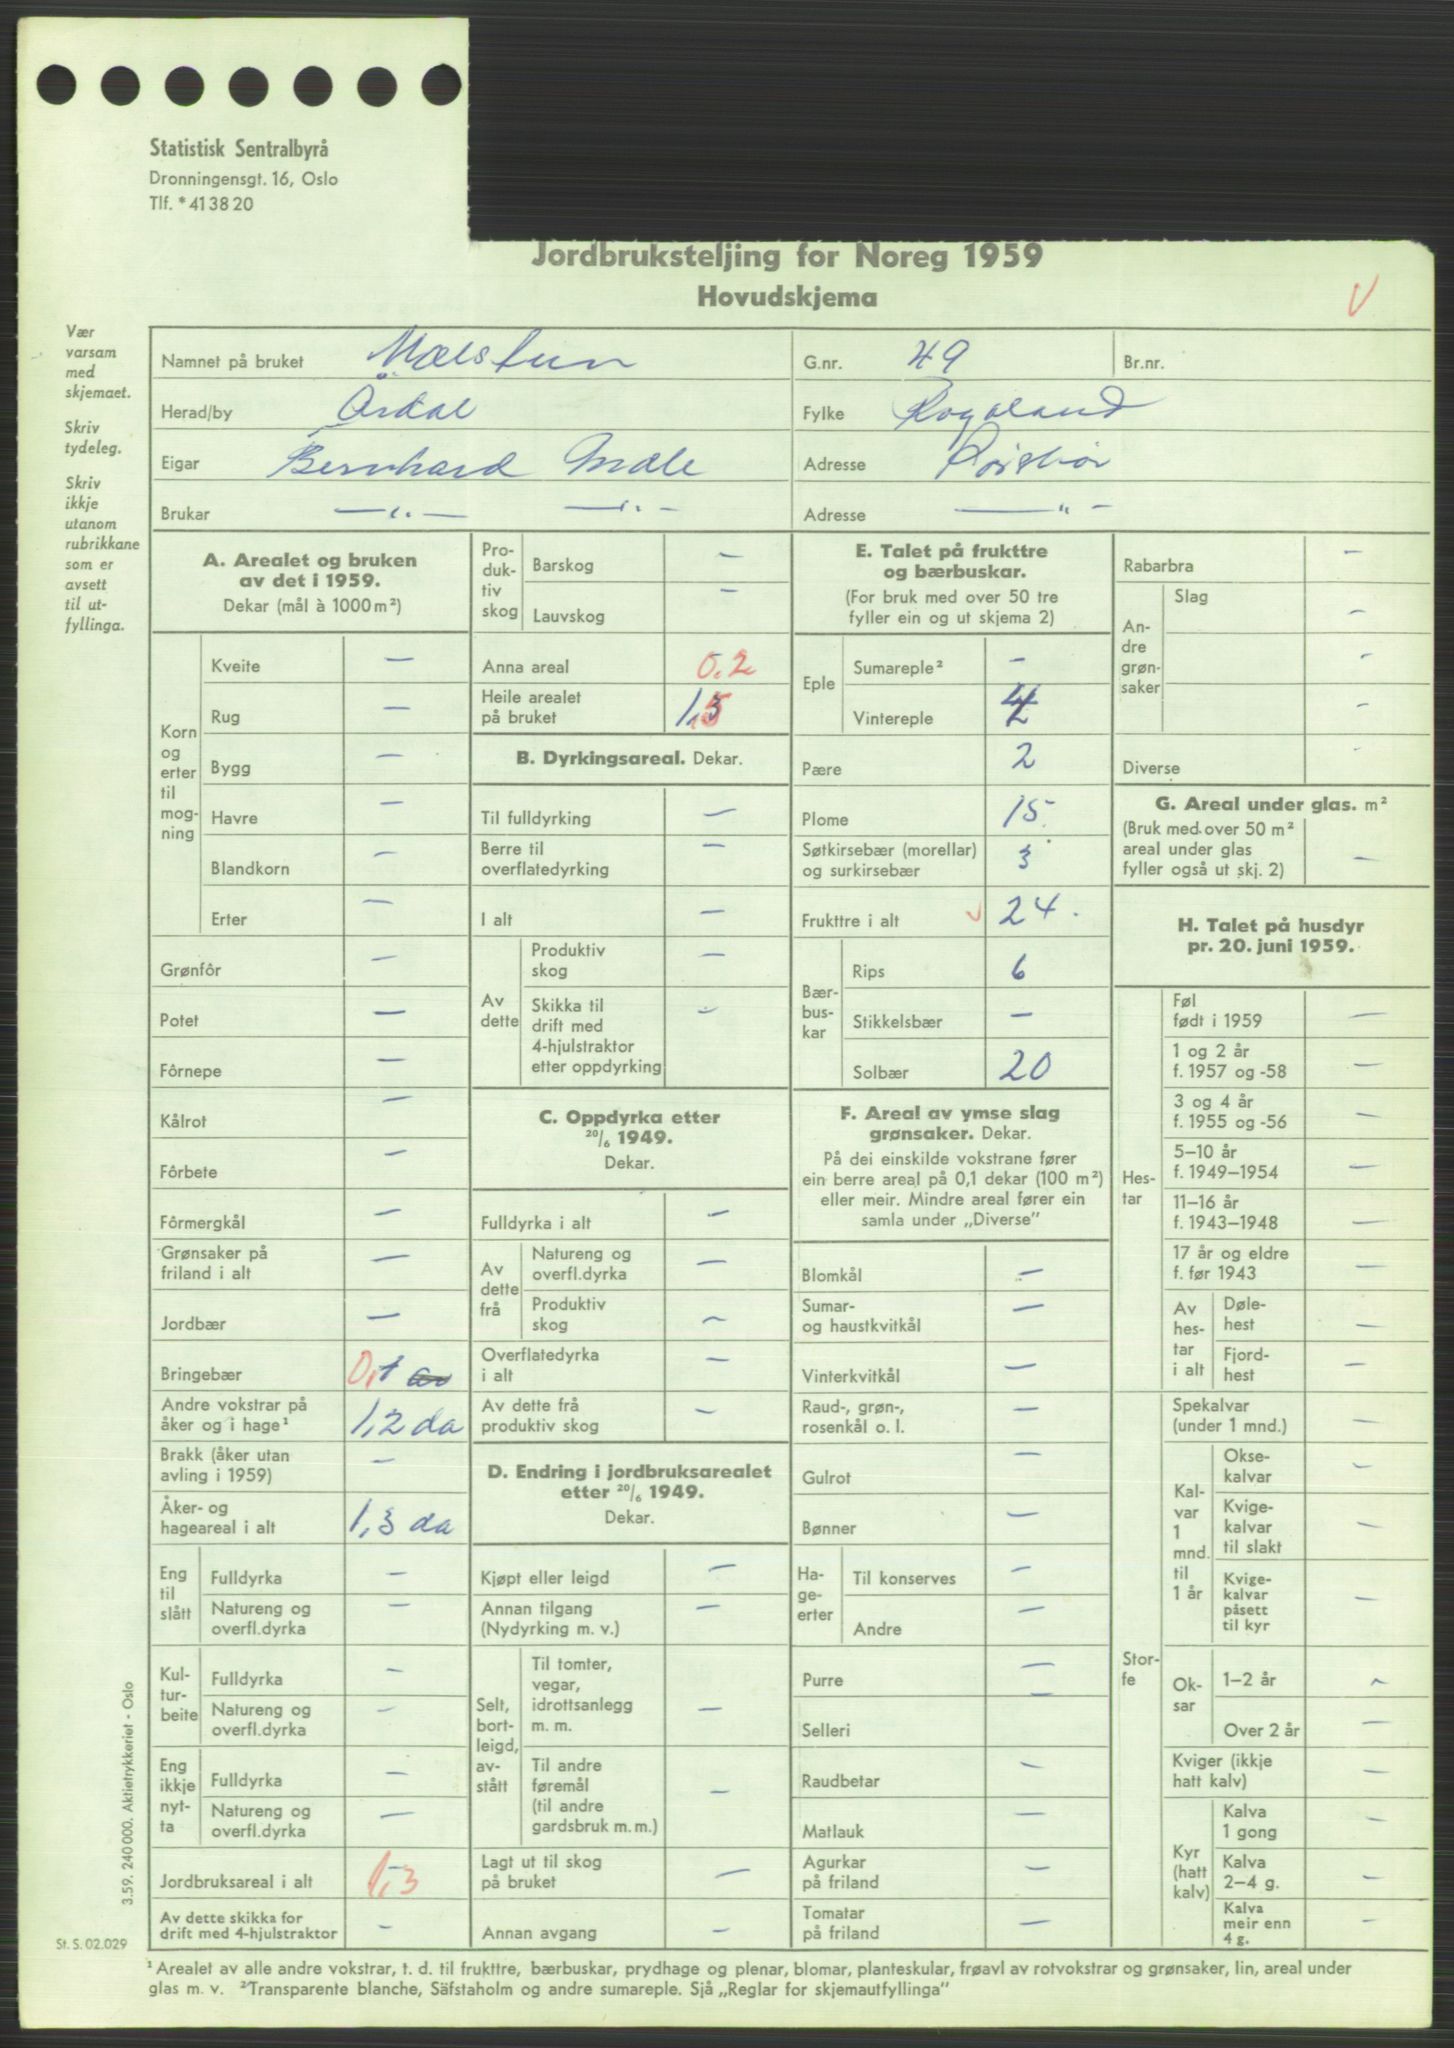 Statistisk Sentralbyrå
Dronningensgt. 16, Oslo
Tlf. * 41 38 20
Jordbruksteljing for Noreg 1959
Hovudskjema
V
Vær
varsam
med
skjemaet.
Skriv
tydeleg.
Skriv
ikkje
utanom
rubrikkane
som er
avsett
til ut-
fyllinga.
Namnet på bruket Mælstun G.nr. 49 Br.nr.
Herad/by Årdal Fylke Rogaland
Eigar Bernhard Mæle Adresse
Brukar — " — — " — Adresse — " —
A. Arealet og bruken
av det i 1959.
Dekar (mål à 1000 m²)
Korn
og
erter
til
mog-
ning
Kveite —
Rug —
Bygg —
Havre —
Blandkorn —
Erter —
Grønfôr —
Potet —
Fôrnepe —
Kålrot —
Fôrbete —
Fôrmergkål —
Grønsaker på
friland i alt —
Jordbær —
Bringebær 0,1
Andre vokstrar på
åker og i hage¹ 1,2 da
Brakk (åker utan
avling i 1959) —
Åker- og
hageareal i alt 1,3 da
Eng
til
slått
Fulldyrka —
Natureng og
overfl.dyrka —
Kul-
tur-
beite
Fulldyrka —
Natureng og
overfl.dyrka —
Eng
ikkje
nyt-
ta
Fulldyrka —
Natureng og
overfl.dyrka —
Jordbruksareal i alt 1,3
Av dette skikka for
drift med 4-hjulstraktor —
Pro-
duk-
tiv
skog
Barskog —
Lauvskog —
Anna areal 0,2
Heile arealet
på bruket 1,5
B. Dyrkingsareal. Dekar.
Til fulldyrking —
Berre til
overflatedyrking —
I alt —
Av
dette
Produktiv
skog —
Skikka til
drift med
4-hjulstraktor
etter oppdyrking —
C. Oppdyrka etter
20/6 1949.
Dekar.
Fulldyrka i alt —
Av
dette
frå
Natureng og
overfl.dyrka —
Produktiv
skog —
Overflatedyrka
i alt —
Av dette frå
produktiv skog —
D. Endring i jordbruksarealet
etter 20/6 1949.
Dekar.
Kjøpt eller leigd —
Annan tilgang
(Nydyrking m. v.) —
Selt,
bort-
leigd,
av-
stått
Til tomter,
vegar,
idrottsanlegg
m. m. —
Til andre
føremål
(til andre
gardsbruk m. m.) —
Lagt ut til skog
på bruket —
Annan avgang —
E. Talet på frukttre
og bærbuskar.
(For bruk med over 50 tre
fyller ein og ut skjema 2)
Eple
Sumareple² —
Vintereple 4
Pære 2
Plome 15
Søtkirsebær (morellar)
og surkirsebær 3
Frukttre i alt V 24
Bær-
bus-
kar
Rips 6
Stikkelsbær —
Solbær 20
F. Areal av ymse slag
grønsaker. Dekar.
På dei einskilde vokstrane fører
ein berre areal på 0,1 dekar (100 m²)
eller meir. Mindre areal fører ein
samla under „Diverse”
Blomkål —
Sumar-
og haustkvitkål —
Vinterkvitkål —
Raud-, grøn-,
rosenkål o. l. —
Gulrot —
Bønner —
Ha-
ge-
erter
Til konserves —
Andre —
Purre —
Selleri —
Raudbetar —
Matlauk —
Agurkar
på friland —
Tomatar
på friland —
Rabarbra —
An-
dre
grøn-
saker
Slag
—
—
—
Diverse —
G. Areal under glas. m²
(Bruk med over 50 m²
areal under glas
fyller også ut skj. 2) —
H. Talet på husdyr
pr. 20. juni 1959.
Hes-
tar
Føl
født i 1959 —
1 og 2 år
f. 1957 og -58 —
3 og 4 år
f. 1955 og -56 —
5–10 år
f. 1949–1954 —
11–16 år
f. 1943–1948 —
17 år og eldre
f. før 1943 —
Av
hes-
tar
i alt
Døle-
hest —
Fjord-
hest —
Stor-
fe
Spekalvar
(under 1 mnd.) —
Kal-
var
1
mnd.
til
1 år
Okse-
kalvar —
Kvige-
kalvar
til slakt —
Kvige-
kalvar
påsett
til kyr —
Ok-
sar
1–2 år —
Over 2 år —
Kviger (ikkje
hatt kalv) —
Kyr
(hatt
kalv)
Kalva
1 gong —
Kalva
2–4 g. —
Kalva
meir enn
4 g. —
3.59. 240 000. Aktietrykkeriet - Oslo
St. S. 02.029
¹ Arealet av alle andre vokstrar, t. d. til frukttre, bærbuskar, prydhage og plenar, blomar, planteskular, frøavl av rotvokstrar og grønsaker, lin, areal under
glas m. v. ² Transparente blanche, Säfstaholm og andre sumareple. Sjå „Reglar for skjemautfyllinga”